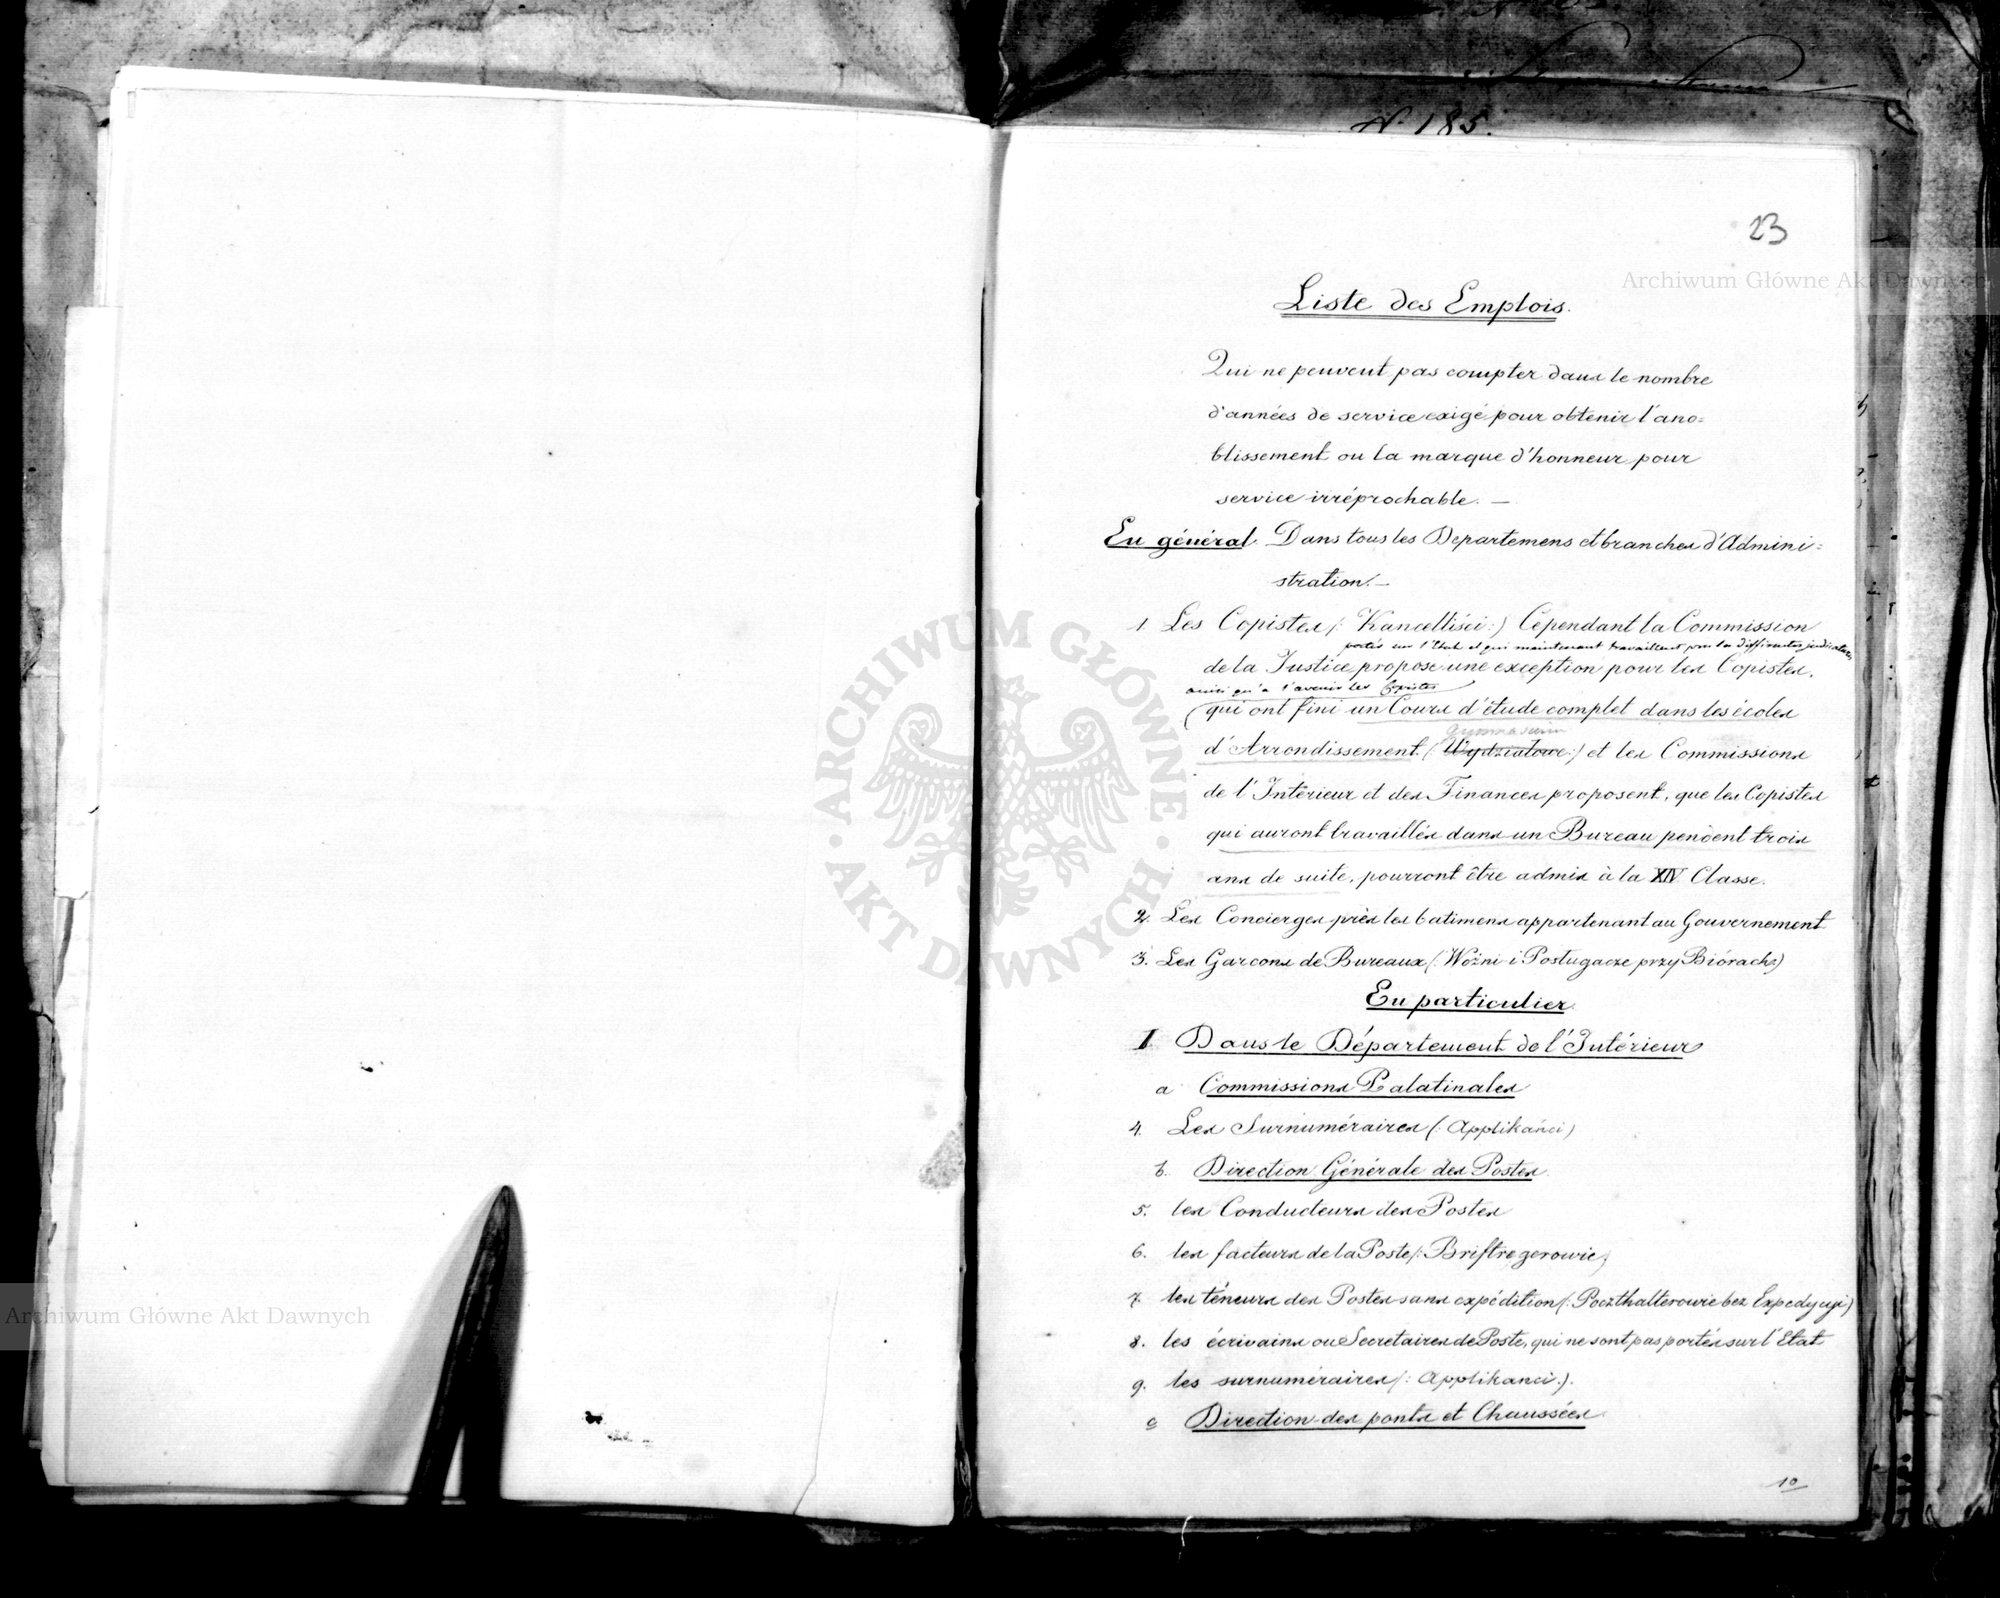 N. 185.
23
Archiwum Główne Akt Dawnych
Liste des Emplois.
Qui ne peuvent pas compter dans le nombre
d'années de service exigé pour obtenir l'ano=
blissement ou la marque d'honneur pour
service irréprochable. —
En général. Dans tous les Departemens et branches d'Admini=
stration. —
1. Les Copistes (: Kancelliści :) Cependant la Commission
portés sur l'Etat et qui maintenant travaillent près les differentes judicatures,
de la Justice propose une exception pour les Copistes,
ainsi qu'à l'avenir les Copistes
qui ont fini un Cours d'étude complet dans les écoles
Gymnasium
d'Arrondissement (: Wydziatowe :) et les Commissions
de l'Intérieur et des Finances proposent, que les Copistes
qui auront travaillés dans un Bureau pendent trois
ans de suite, pourront être admis à la XIV Classe.
2. Les Concierges près les batimens appartenant au Gouvernement
3. Les Garcons de Bureaux (: Woźni i Posługacze przy Biórach :)
En particulier.
I. Dans le Département de l'Intérieur
a Commissions Palatinales
4. Les Surnuméraires (: Applikańci )
b. Direction Générale des Postes.
5. les Conducteurs des Postes
6. les facteurs de la Poste (: Briftregerowie )
7. les téneurs des Postes sans expédition (: Poczthalterowie bez Expedycyi )
8. les écrivains ou Secretaires de Poste, qui ne sont pas portés sur l'Etat
9. les surnuméraires (: Applikanci :).
c Direction des ponts et Chaussées.
10
ARCHIWUM GŁÓWNE AKT DAWNYCH
Archiwum Główne Akt Dawnych